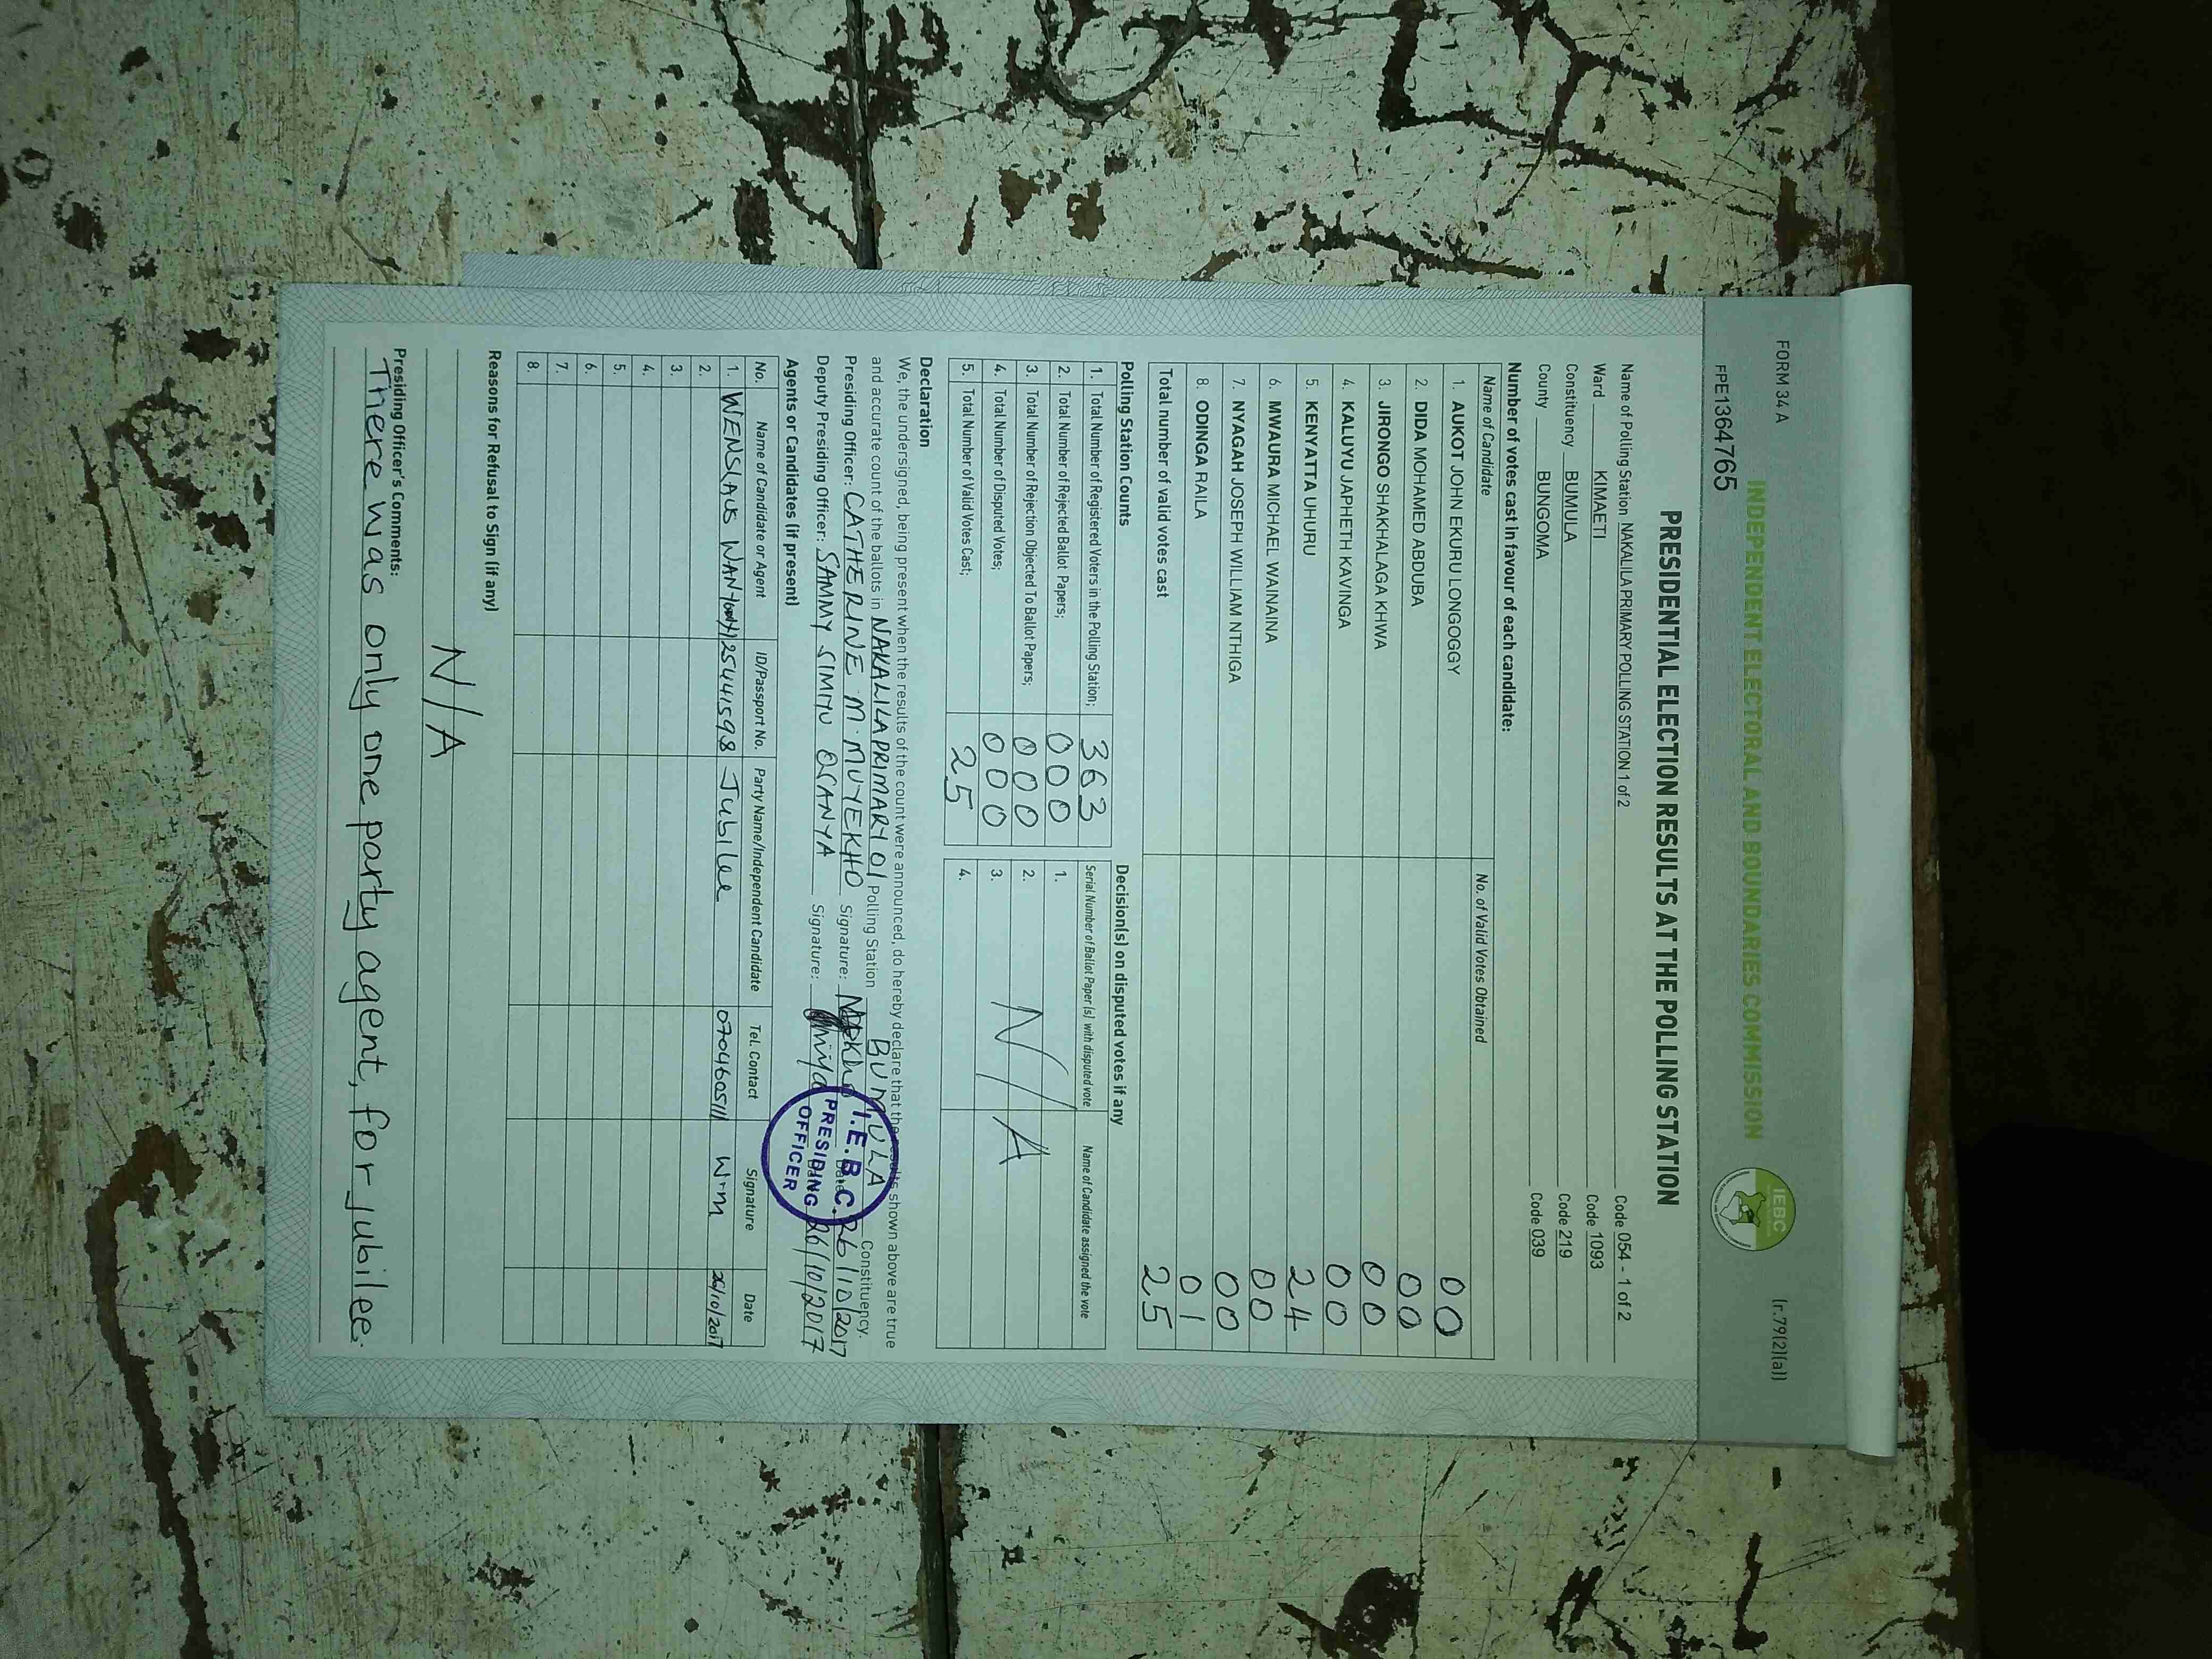 FORM 34 A
(r.79(2)(a))
INDEPENDENT ELECTORAL AND BOUNDARIES COMMISSION
IEBC
FPE1364765
PRESIDENTIAL ELECTION RESULTS AT THE POLLING STATION
Name of Polling Station NAKALILA PRIMARY POLLING STATION 1 of 2 Code 054 - 1 of 2
Ward KIMAETI Code 1093
Constituency BUMULA Code 219
County BUNGOMA Code 039
Number of votes cast in favour of each candidate:
Name of Candidate No. of Valid Votes Obtained
1. AUKOT JOHN EKURU LONGOGGY 00
2. DIDA MOHAMED ABDUBA 00
3. JIRONGO SHAKHALAGA KHWA 00
4. KALUYU JAPHETH KAVINGA 00
5. KENYATTA UHURU 24
6. MWAURA MICHAEL WAINAINA 00
7. NYAGAH JOSEPH WILLIAM NTHIGA 00
8. ODINGA RAILA 01
Total number of valid votes cast 25
Polling Station Counts
1. Total Number of Registered Voters in the Polling Station; 363
2. Total Number of Rejected Ballot Papers; 000
3. Total Number of Rejection Objected To Ballot Papers; 000
4. Total Number of Disputed Votes; 000
5. Total Number of Valid Votes Cast; 25
Decision(s) on disputed votes if any
Serial Number of Ballot Paper (s) with disputed vote Name of Candidate assigned the vote
1.
2.
3.
4.
N/A
Declaration
We, the undersigned, being present when the results of the count were announced, do hereby declare that the results shown above are true
and accurate count of the ballots in NAKALILA PRIMARY 01 Polling Station BUMULA Constituency.
Presiding Officer: CATHERINE M. MUYEKHO Signature: Date: 26/10/2017
Deputy Presiding Officer: SAMMY SIMIYU Signature: 26/10/2017
I.E.B.C.
PRESIDING
OFFICER
Agents or Candidates (if present)
No. Name of Candidate or Agent ID/Passport No. Party Name/Independent Candidate Tel. Contact Signature Date
1. WENSLAUS 25441598 Jubilee 0704605111 26/10/2017
2.
3.
4.
5.
6.
7.
8.
Reasons for Refusal to Sign (if any)
N/A
Presiding Officer's Comments:
There was only one party agent, for jubilee.